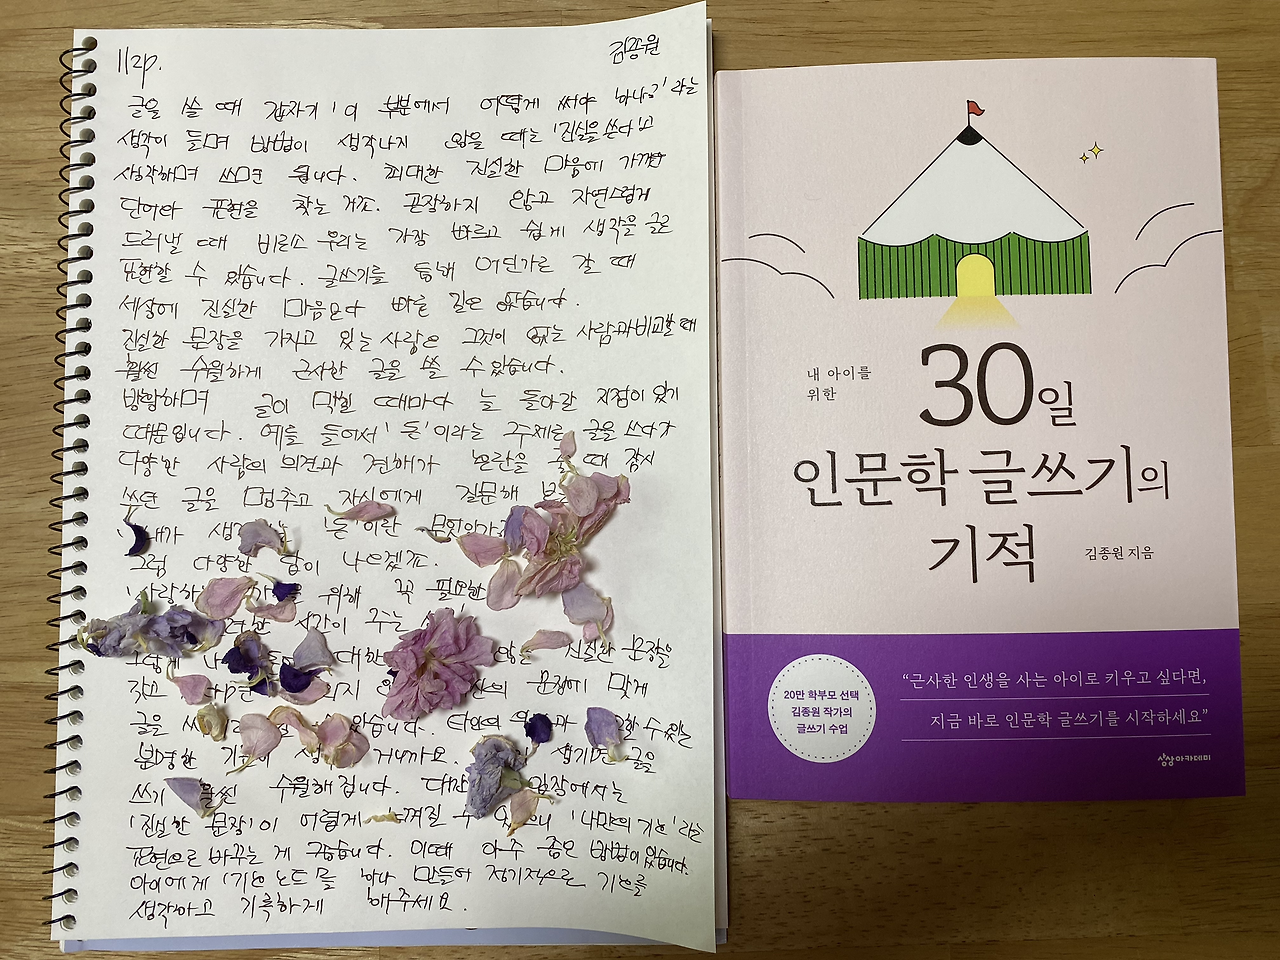 112p.
김종원
글을 쓸 때 갑자기 '이 부분에서 어떻게 써야 하나?'라는
생각이 들며 방법이 생각나지 않을 때는 '진실을 쓴다'고
생각하며 쓰면 됩니다. 최대한 진실한 마음에 가까운
단어와 표현을 찾는 거죠. 포장하지 않고 자연스럽게
드러낼 때 비로소 우리는 가장 빠르고 쉽게 생각을 글로
표현할 수 있습니다. 글쓰기를 통해 어딘가로 갈 때
세상에 진실한 마음보다 빠른 길은 없습니다.
진실한 문장을 가지고 있는 사람은 그것이 없는 사람과 비교할 때
훨씬 수월하게 근사한 글을 쓸 수 있습니다.
방황하며 글이 막힐 때마다 늘 돌아갈 지점이 있기
때문입니다. 예를 들어서 '돈'이라는 주제로 글을 쓰다가
다양한 사람의 의견과 견해가 혼란을 줄 때 잠시
쓰던 글을 멈추고 자신에게 질문해
내가 '돈'이란 무엇인가
그럼 다양한 답이 나오겠죠.
위해 꼭 필요한
시간이 주는
진실한 문장을
갖고 문장에 맞게
글을 있습니다.
분명한 생기면 글을
쓰기 훨씬 수월해집니다. 입장에서는
'진실한 문장'이 어렵게 수 있으니 '나만의 기준'라는
표현으로 바꾸는 게 좋습니다. 이때 아주 좋은 방법이 있습니다.
아이에게 '기준 노트'를 하나 만들어 정기적으로 기준을
생각하고 기록하게 해주세요.
내 아이를
위한
30일
인문학 글쓰기의
기적
김종원 지음
20만 학부모 선택
김종원 작가의
글쓰기 수업
“근사한 인생을 사는 아이로 키우고 싶다면,
지금 바로 인문학 글쓰기를 시작하세요”
상상아카데미